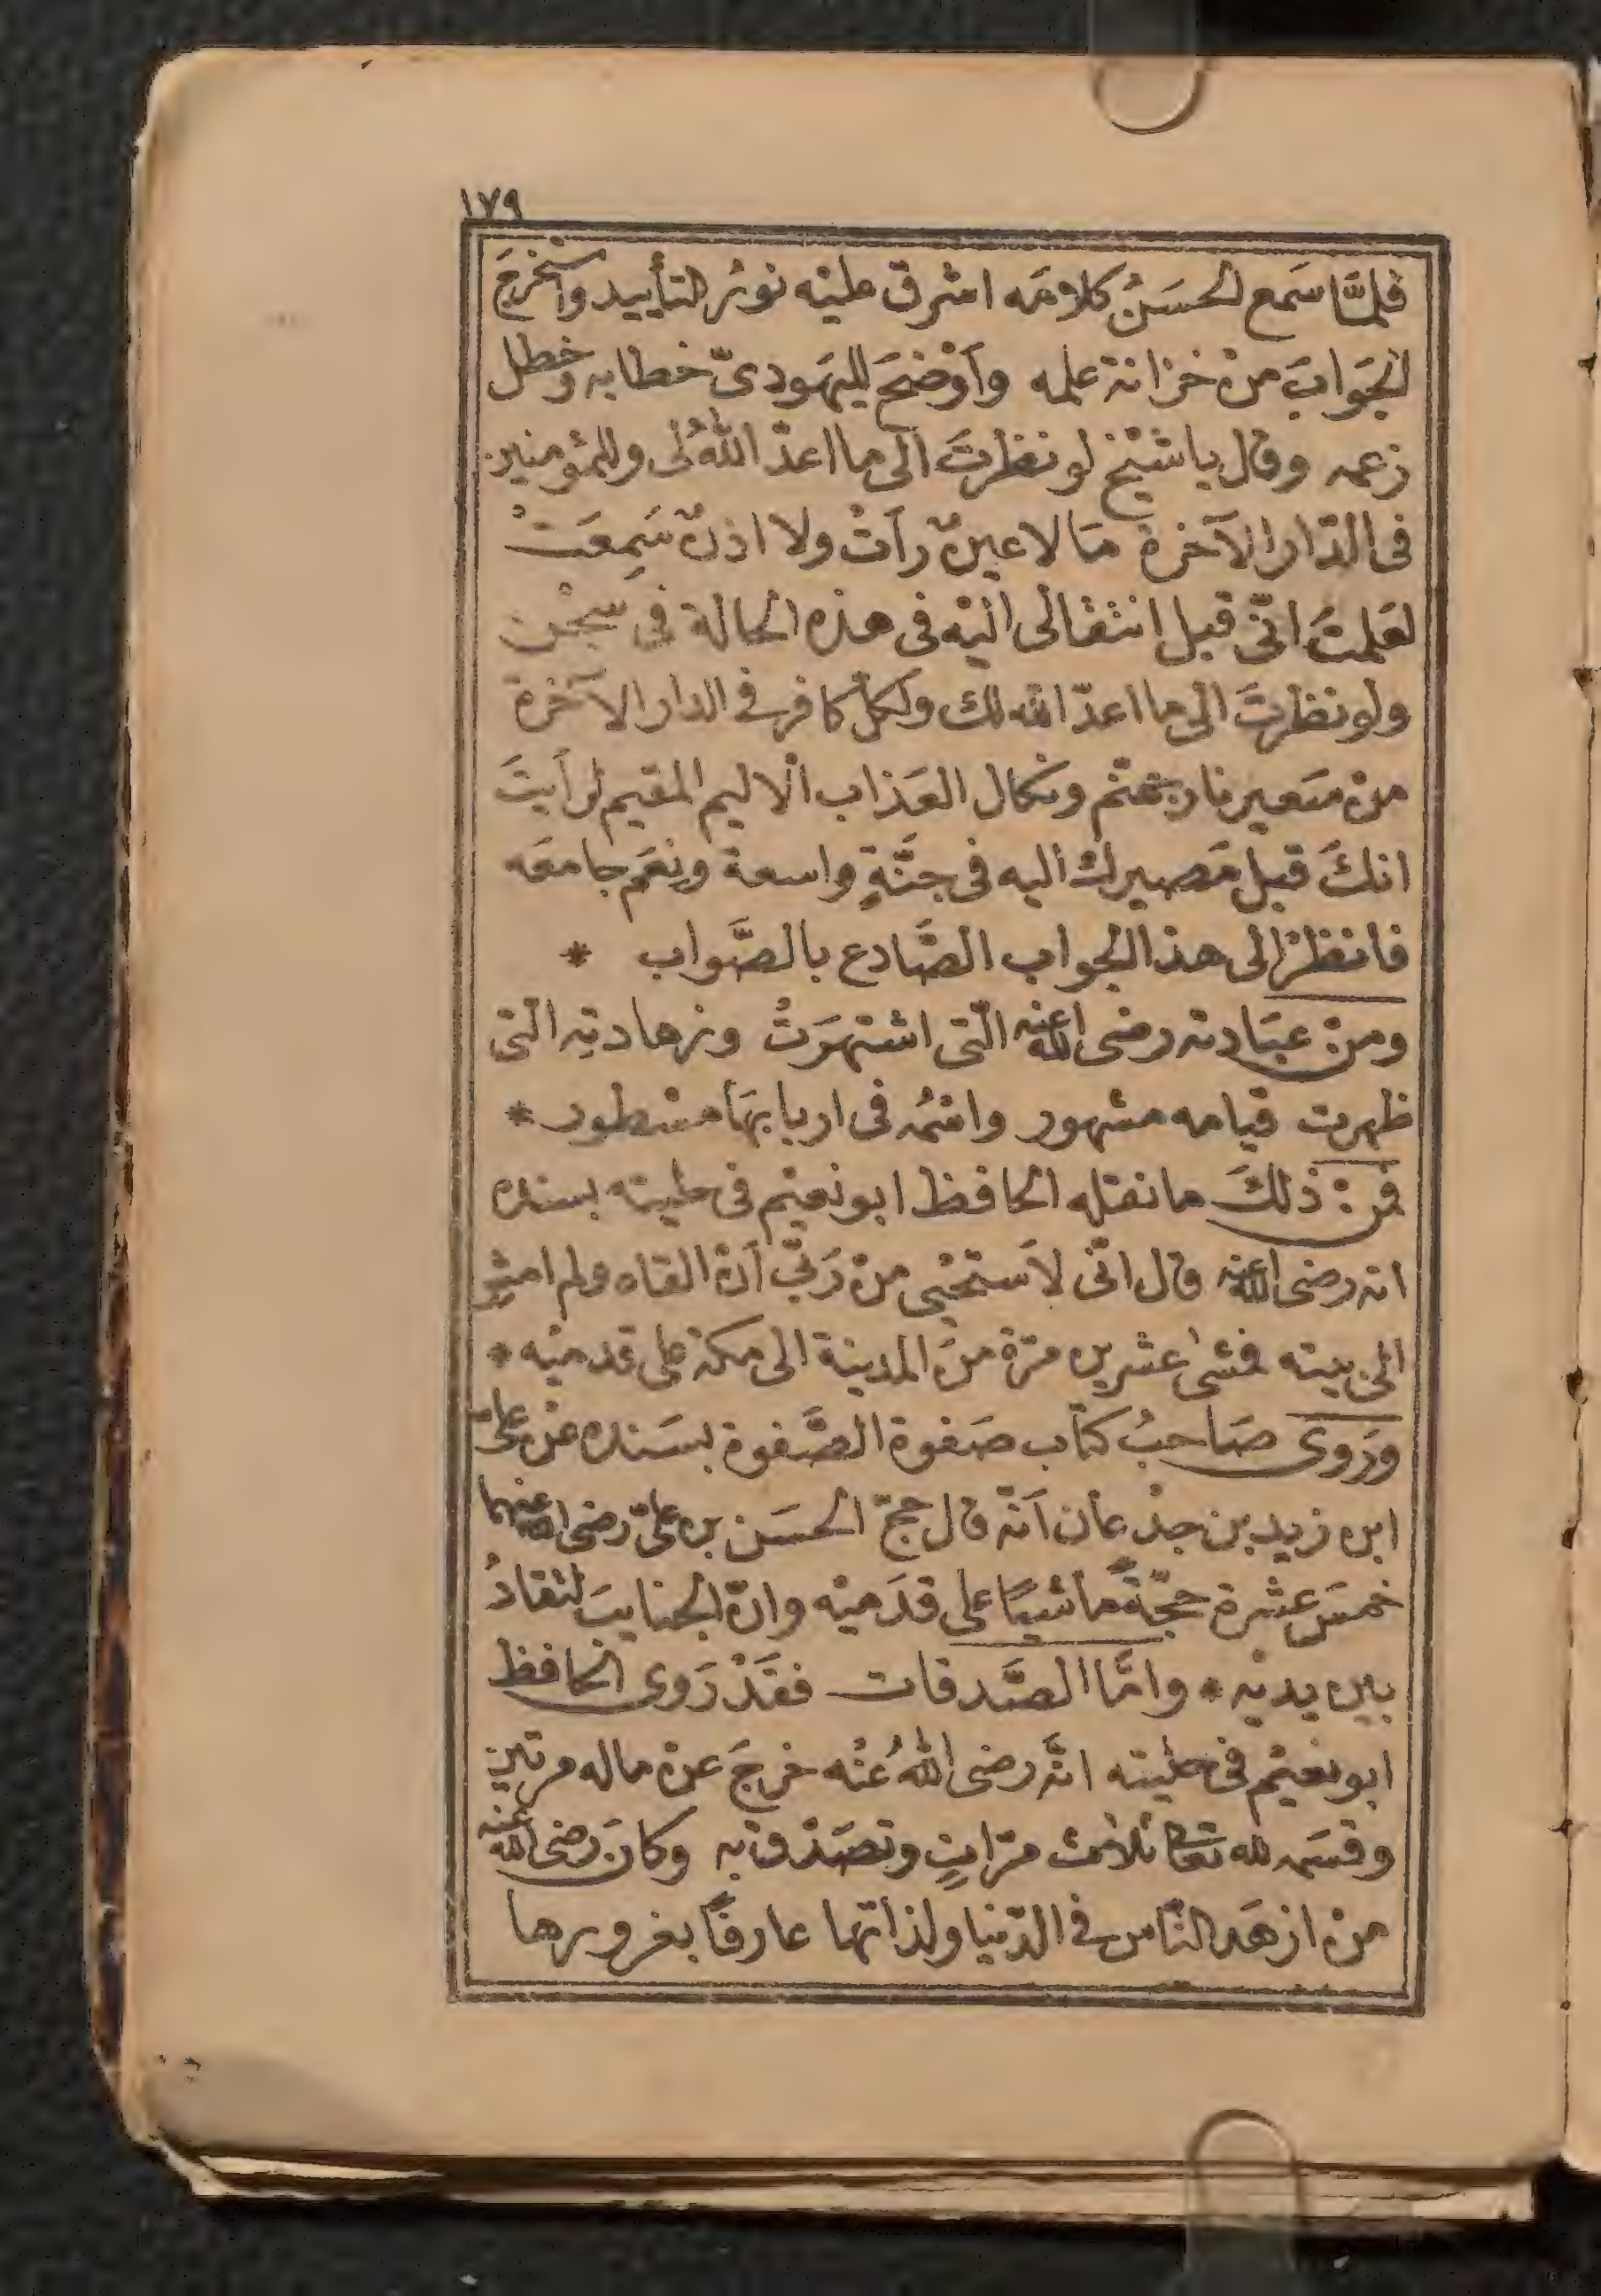 ١٧٩
فلمَّا سَمع الحسَنُ كلامَه اشرق عليْه نورُ التأييد واسْتخرجَ
الجَوابَ منْ خزانة علمه وأوْضحَ لليَهودىّ خطابه وخطل
زعمه وقال يا شيْخ لو نظرتَ الى ما اعدّ اللهُ لى وللمُؤمنين
فى الدّار الآخرة مَا لا عينٌ رأتْ ولا اذنٌ سَمِعَتْ
لعَلمتَ انّى قبل انتقالى اليْه فى هذه الحالة فى سجْن
ولو نظرتَ الى ما اعدّ الله لك ولكلّ كافر فى الدار الآخرة
منْ سَعير نار جهنّم ونكال العَذاب الاليم المقيم لرأيتَ
انكَ قبل مَصيرك اليه فى جنَّةٍ واسعة ونِعَم جامعَه
فانظرْ الى هذا الجواب الصَّادع بالصَّواب *
ومنْ عبَادته رضى الله عنه الّتى اشتهرَتْ وزهادتِه الّتى
ظهرت قيامه مشهور واسمُه فى اربابهَا مسْطور *
فمنْ ذلكَ ما نقله الحافظ ابو نعيْم فى حليته بسنده
انه رضى الله عنه قال انّى لاَستحْيى منْ رَبّى أنْ القاه ولم امشِ
الى بيته فمشى عشرين مرّة منَ المدينة الى مكة على قدميْه *
ورَوى صَاحبُ كتاب صَفوة الصَّفوة بسَنده عنْ علىّ
ابن زيد بن جدْعان أنّه قال حجّ الحسَن بن علىّ رضى الله عنهما
خمسَ عشْرة حجّةً ماشيًا على قدَميْه وانّ الجنايبَ لتقادُ
بين يديْه * وامَّا الصَّدقات فقَدْ رَوى الحافظ
ابو نعيْم فى حليَته انَّه رضى اللهُ عنْه خرجَ عنْ ماله مرتين
وقسَمه لله تعالى ثلاثَ مرّاتٍ وتصَدّق به وكانَ رضى الله عنه
منْ ازهَد النّاس فى الدّنيا ولذاتها عارفًا بغرورها